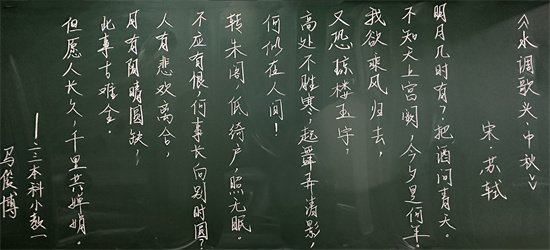 《水调歌头·中秋》
宋·苏轼
明月几时有?把酒问青天。
不知天上宫阙,今夕是何年。
我欲乘风归去,
又恐琼楼玉宇,
高处不胜寒,起舞弄清影,
何似在人间!
转朱阁,低绮户,照无眠。
不应有恨,何事长向别时圆?
人有悲欢离合,
月有阴晴圆缺,
此事古难全。
但愿人长久,千里共婵娟。
——二三本科小教一
马俊博